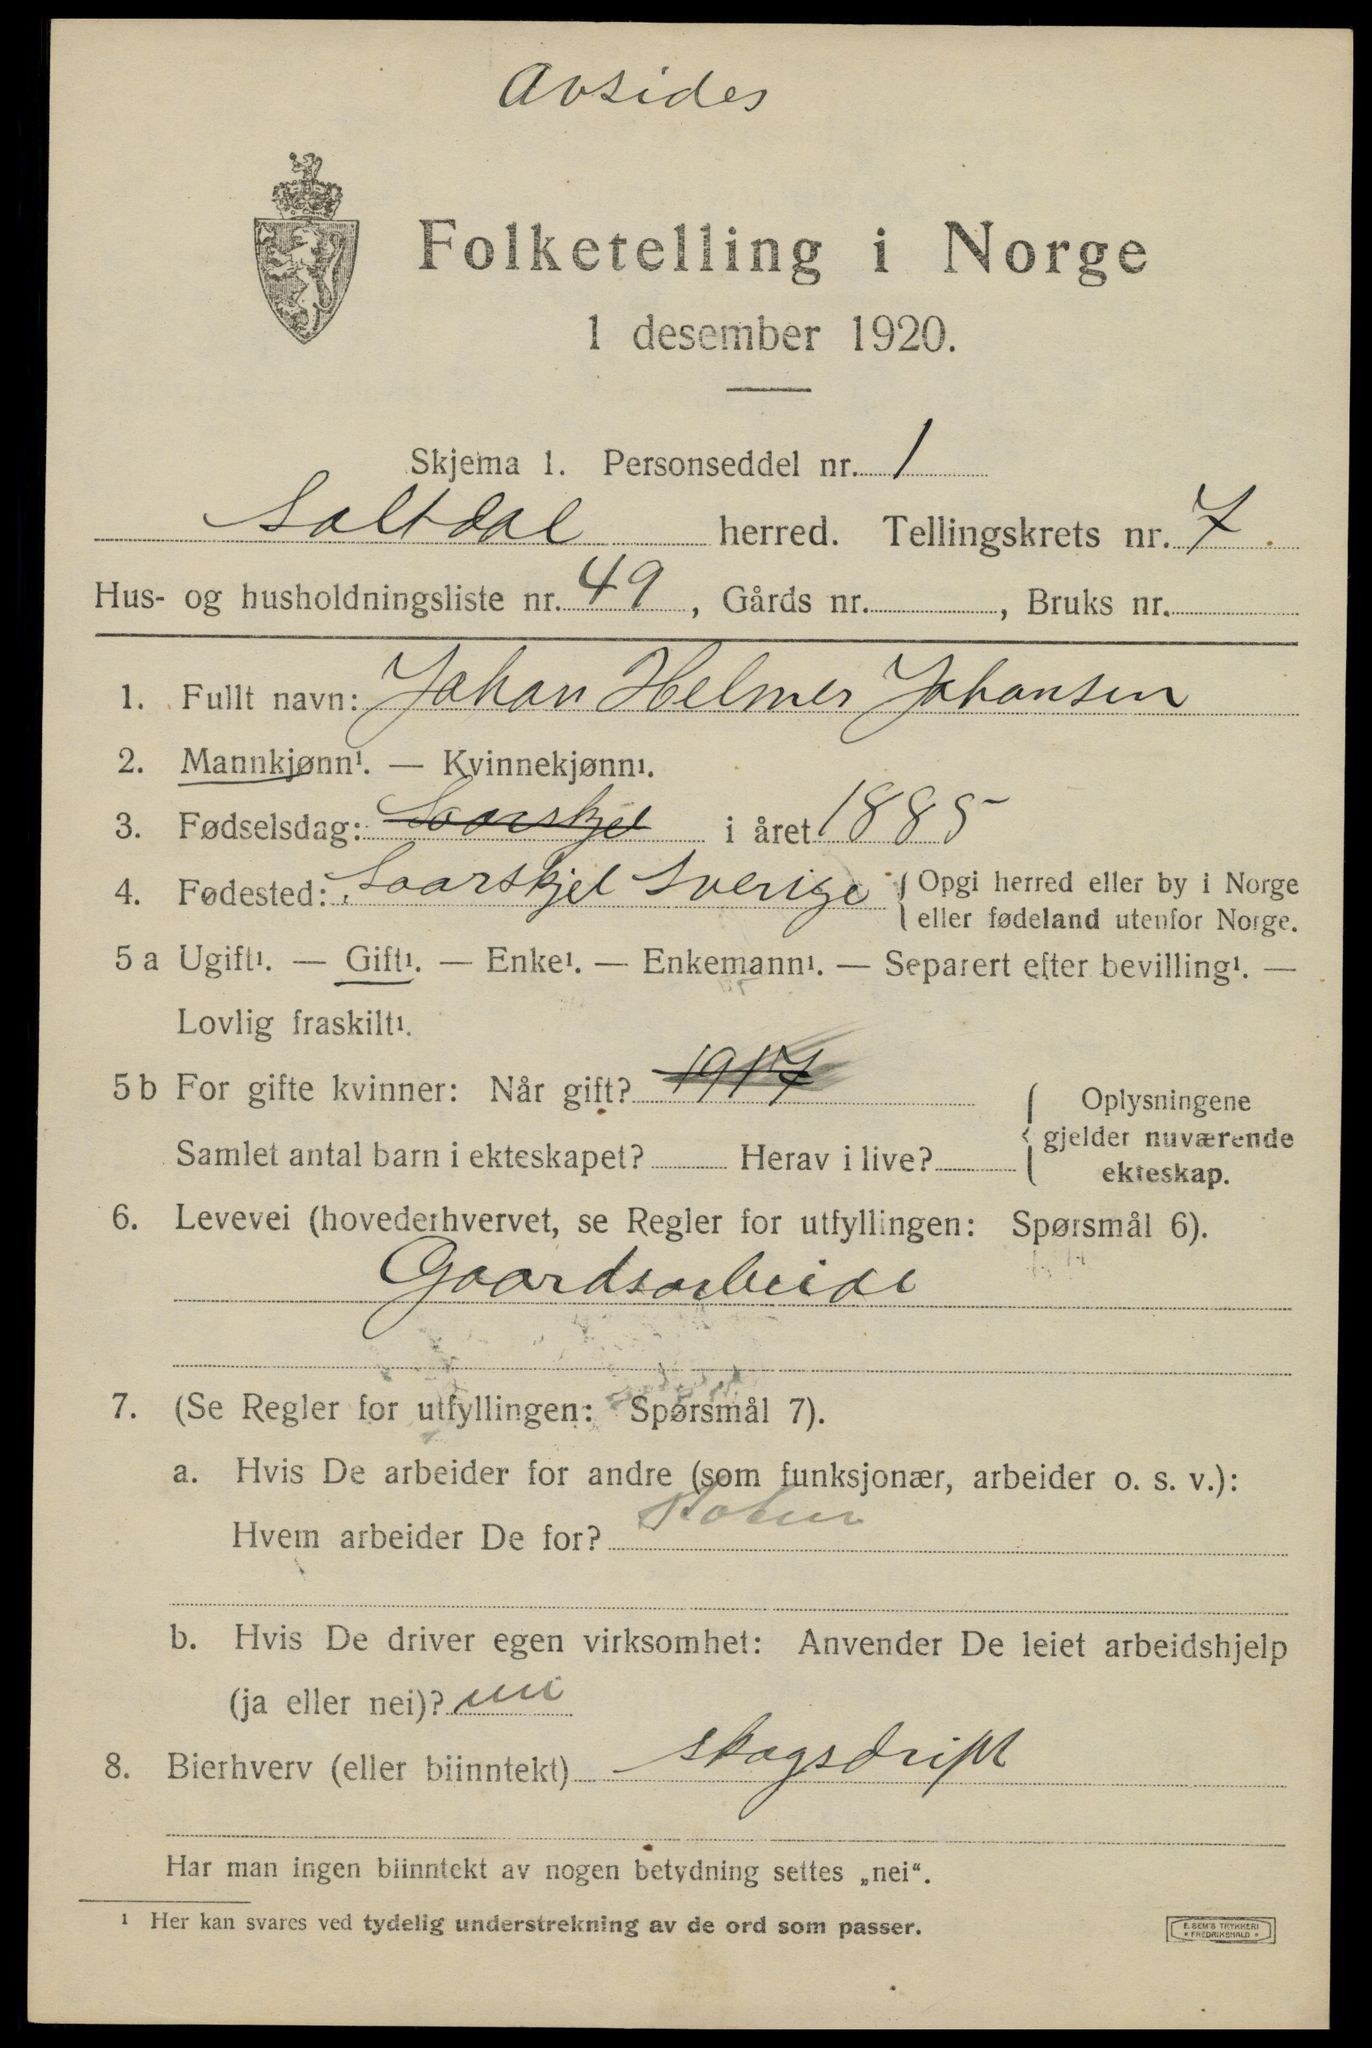 Avsides
Folketelling i Norge
1 desember 1920.
Skjema 1. Personseddel nr. 1
Saltdal herred. Tellingskrets nr. 7.
Hus- og husholdningsliste nr. 49, Gårds nr. , Bruks nr.
1. Fullt navn: Johan Helmer Johansen
2. Mannkjønn¹. — Kvinnekjønn¹.
3. Fødselsdag: Saarskjel i året 1885
4. Fødested: Saarskjel Sverige { Opgi herred eller by i Norge
eller fødeland utenfor Norge.
5 a Ugift¹. — Gift¹. — Enke¹. — Enkemann¹. — Separert efter bevilling¹. —
Lovlig fraskilt¹.
5 b For gifte kvinner: Når gift? 1917
Samlet antal barn i ekteskapet? Herav i live?
{ Oplysningene
gjelder nuværende
ekteskap.
6. Levevei (hovederhvervet, se Regler for utfyllingen: Spørsmål 6).
Gaardsarbeide
7. (Se Regler for utfyllingen: Spørsmål 7).
a. Hvis De arbeider for andre (som funksjonær, arbeider o. s. v.):
Hvem arbeider De for?
b. Hvis De driver egen virksomhet: Anvender De leiet arbeidshjelp
(ja eller nei)? nei
8. Bierhverv (eller biinntekt) skogsdrift
Har man ingen biinntekt av nogen betydning settes „nei“.
¹ Her kan svares ved tydelig understrekning av de ord som passer.
E. SEM'S TRYKKERI
* FREDRIKSHALD *